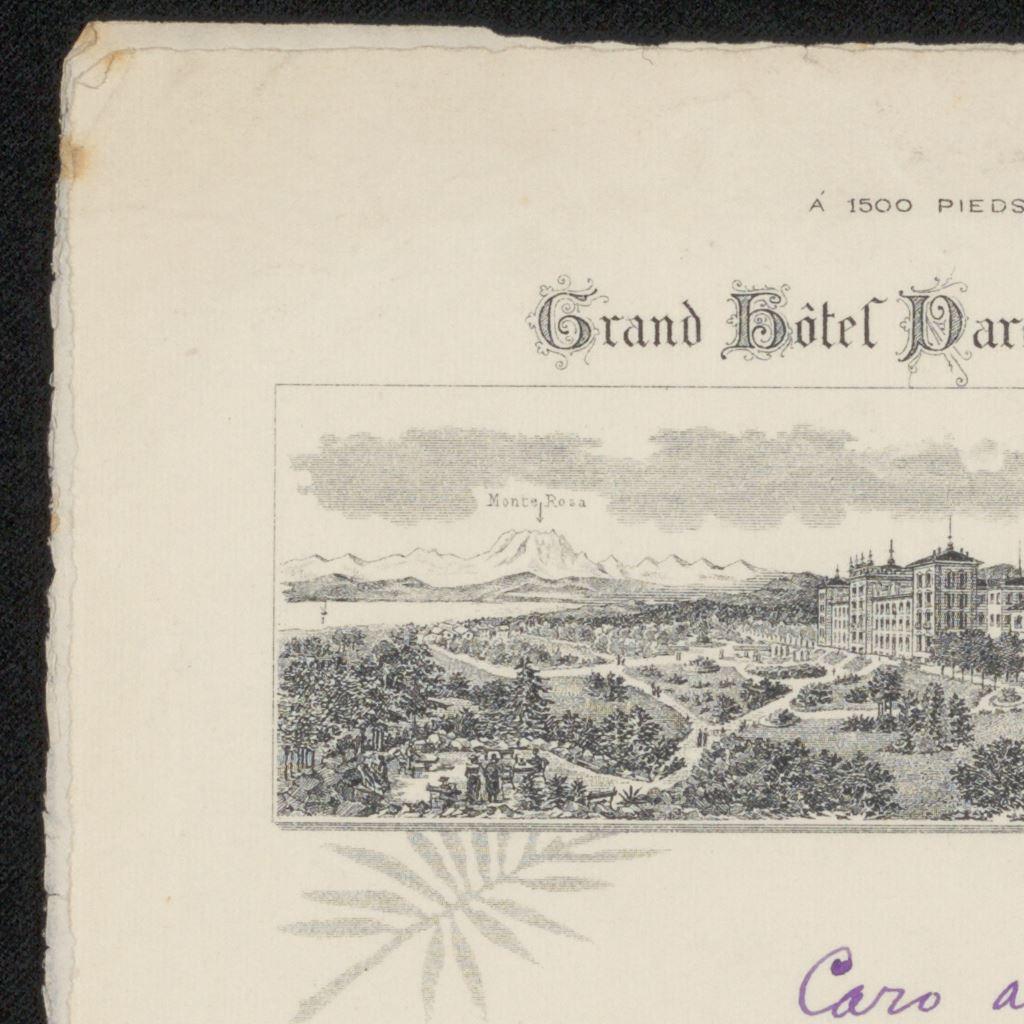 Á 1500 PIEDS
Grand Hôtel Par
Monte Rosa
Caro a